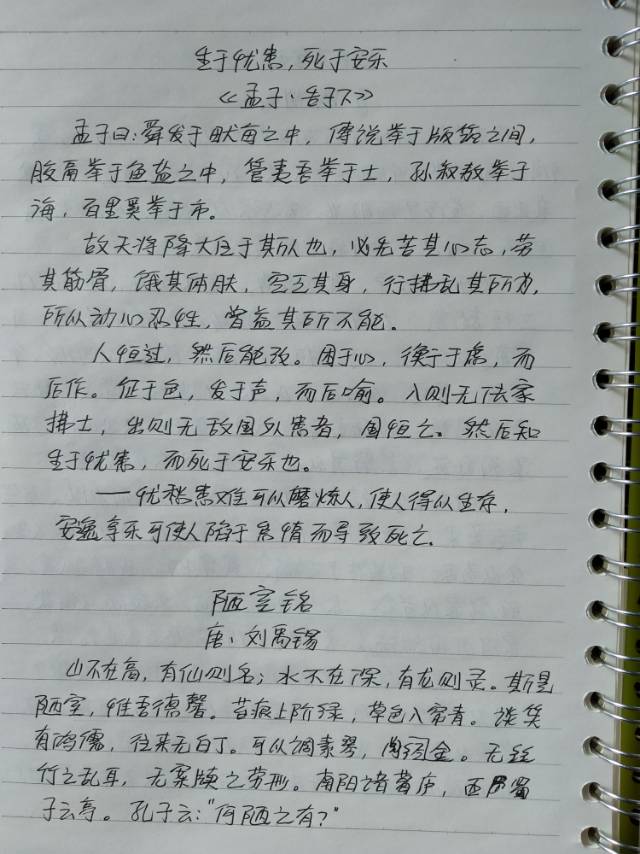 生于忧患，死于安乐
《孟子·告子下》
孟子曰：舜发于畎亩之中，傅说举于版筑之间，
胶鬲举于鱼盐之中，管夷吾举于士，孙叔敖举于
海，百里奚举于市。
故天将降大任于斯人也，必先苦其心志，劳
其筋骨，饿其体肤，空乏其身，行拂乱其所为，
所以动心忍性，曾益其所不能。
人恒过，然后能改。困于心，衡于虑，而
后作。征于色，发于声，而后喻。入则无法家
拂士，出则无敌国外患者，国恒亡。然后知
生于忧患，而死于安乐也。
——忧愁患难可以磨炼人，使人得以生存，
安逸享乐可使人陷于怠惰而导致死亡.
陋室铭
唐·刘禹锡
山不在高，有仙则名；水不在深，有龙则灵。斯是
陋室，惟吾德馨。苔痕上阶绿，草色入帘青。谈笑
有鸿儒，往来无白丁。可以调素琴，阅金。无丝
竹之乱耳，无案牍之劳形。南阳诸葛庐，西蜀
子云亭。孔子云："何陋之有？"